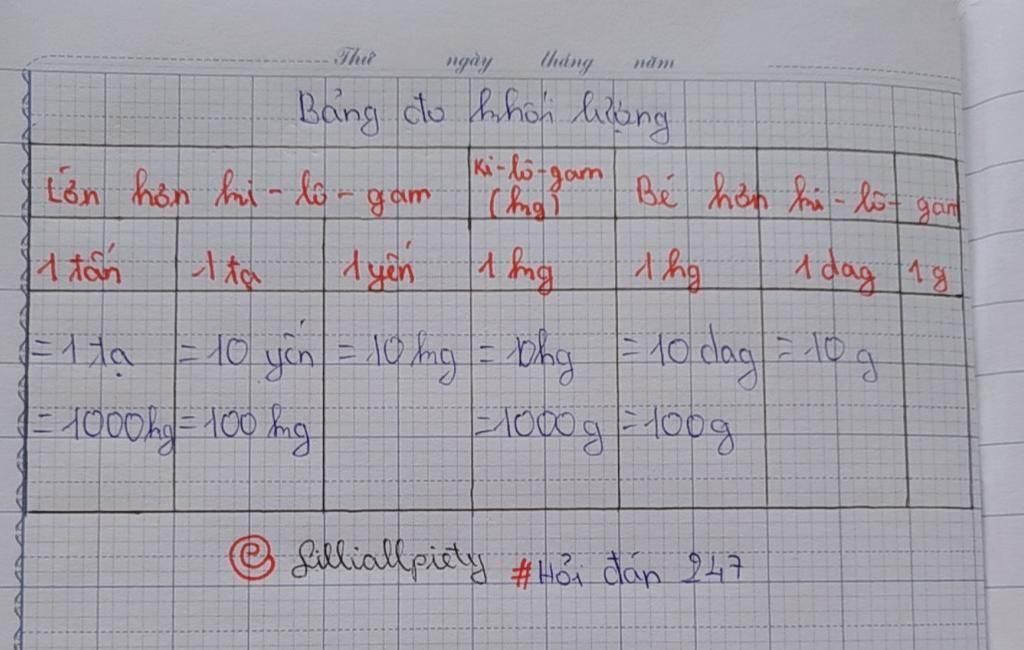 Thứ ngày tháng năm
Bảng đo khối lượng
Lớn hơn ki-lô-gam Ki-lô-gam (kg) Bé hơn ki-lô-gam
1 tấn 1 tạ 1 yến 1 kg 1 hg 1 dag 1 g
= 1 tạ = 10 yến = 10 kg = 10hg = 10 dag = 10 g
= 1000kg = 100 kg = 1000g = 100g
@ filliallpiety #Hỏi đán 247